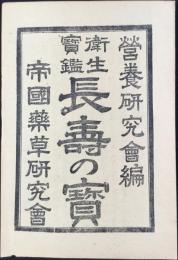 營養研究會編
衛生寶鑑
長壽の寶
帝國藥草研究會